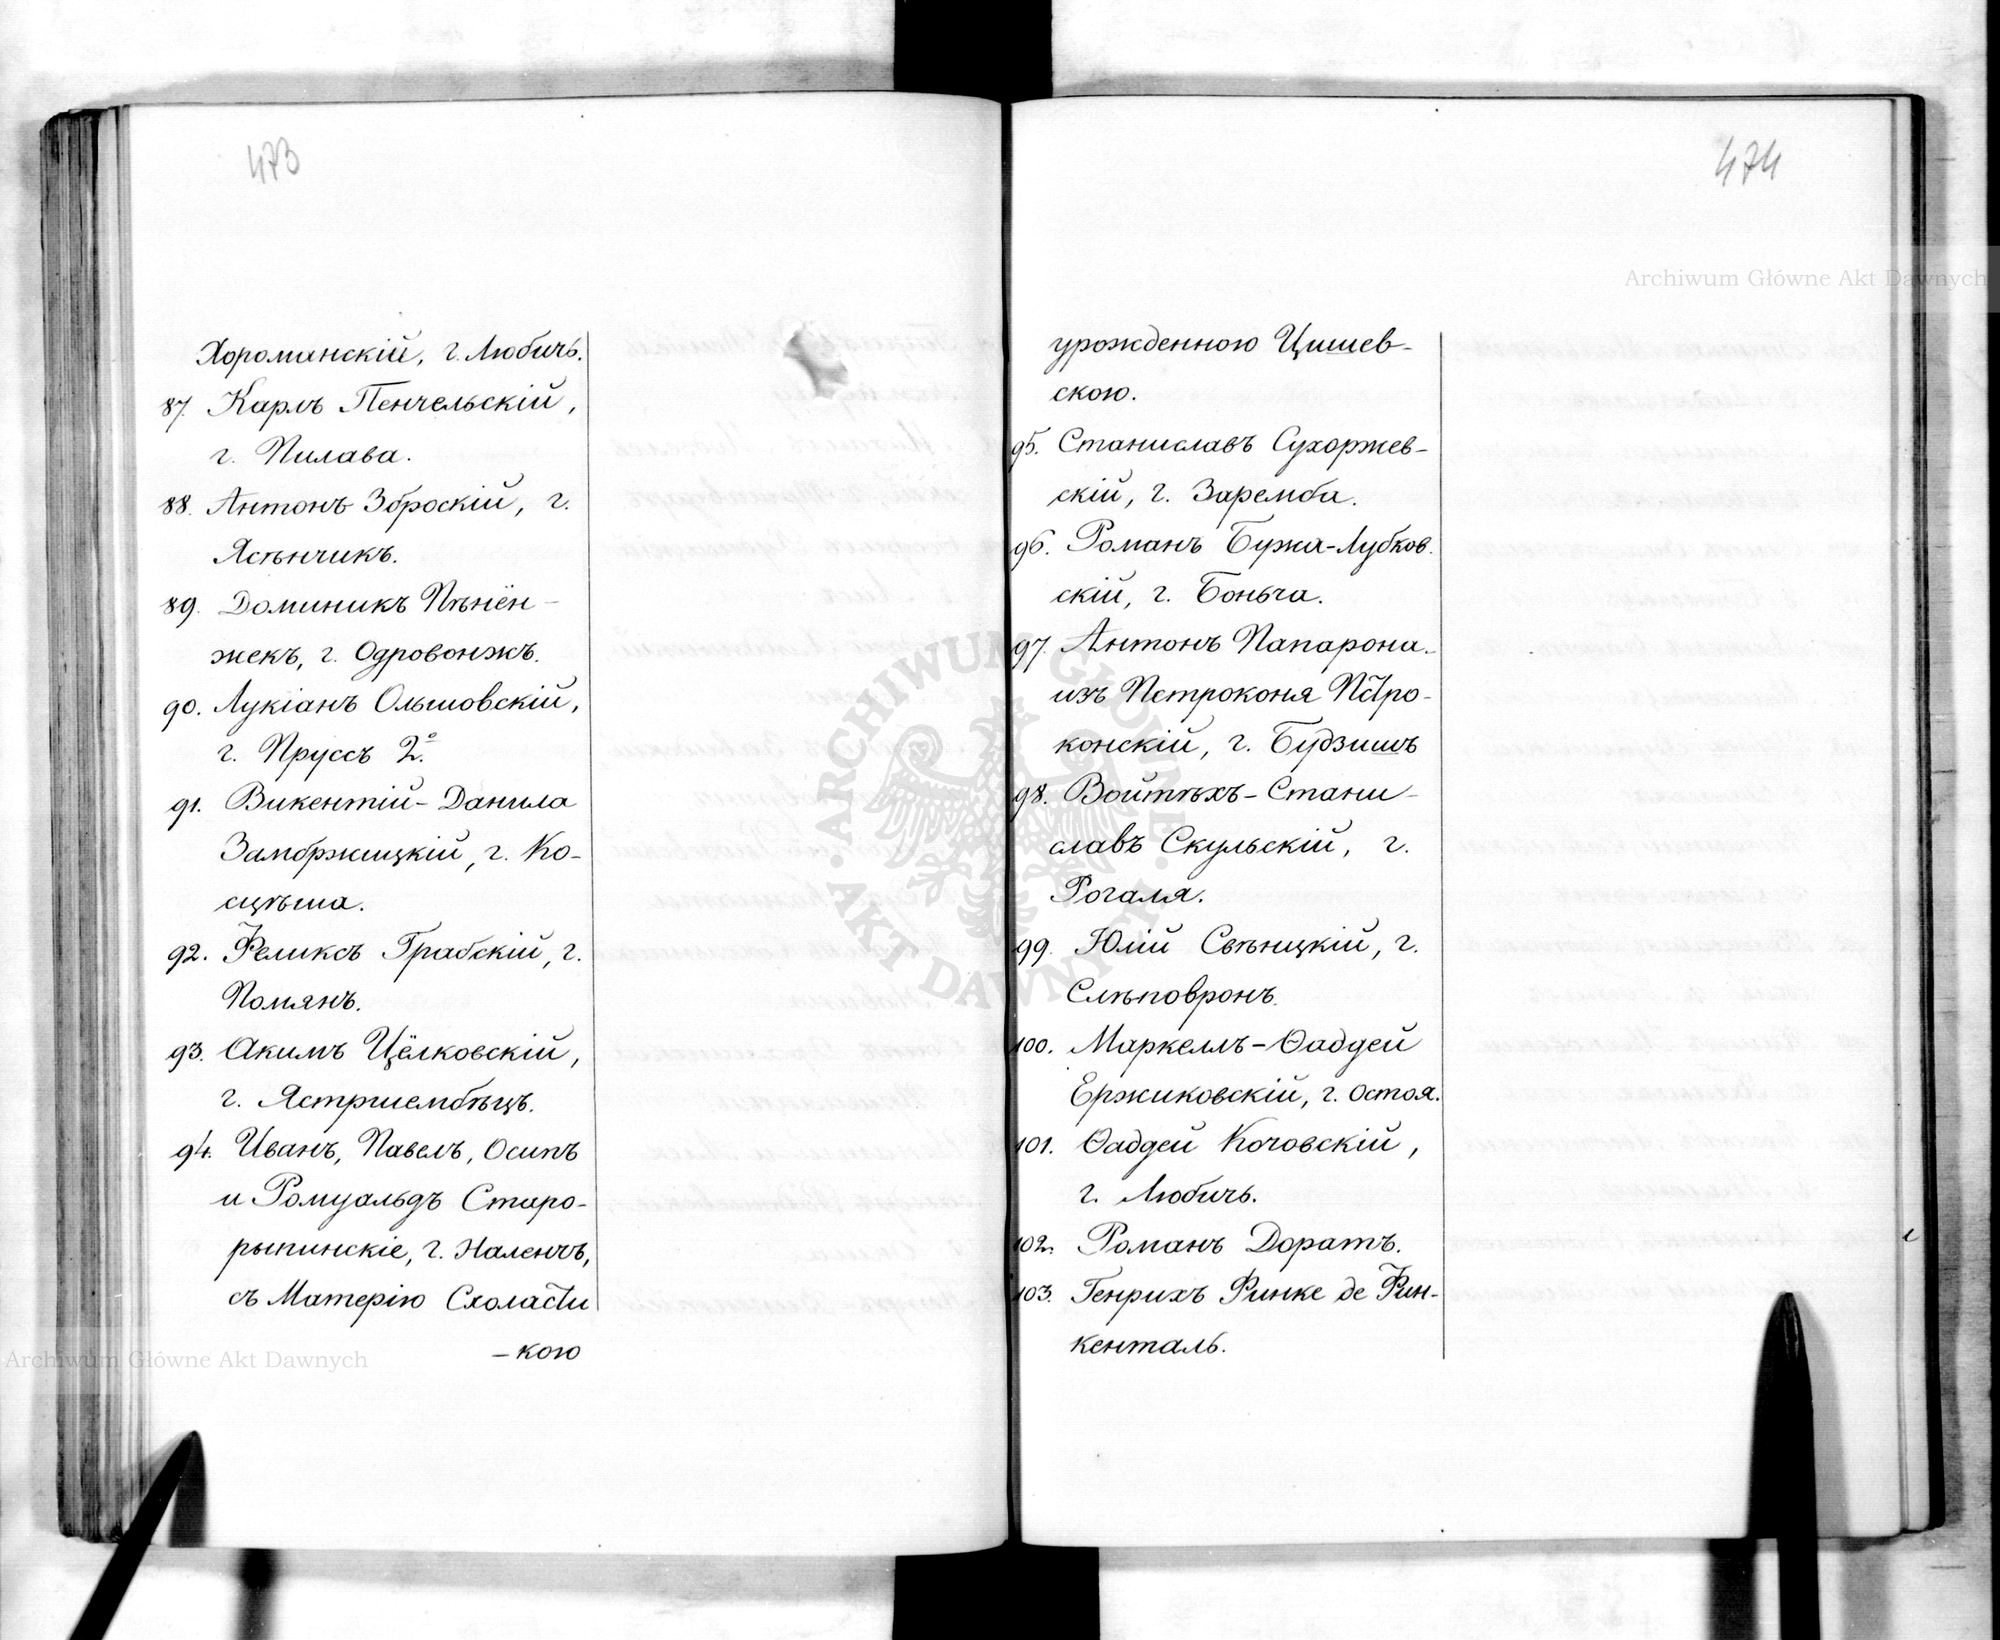 473
Хороманскій, г. Любичъ.
87. Карлъ Пенчельскій,
г. Пилава.
88. Антонъ Зброскій, г.
Ясѣнчикъ.
89. Доминикъ Пѣнён-
жекъ, г. Одровонжъ.
90. Лукіанъ Ольшовскій,
г. Пруссъ 2º.
91. Викентій-Данила
Замбржицкій, г. Ко-
сцѣша.
92. Феликсъ Грабскій, г.
Помянъ.
93. Акимъ Цёлковскій,
г. Ястржембѣцъ.
94. Иванъ, Павелъ, Осипъ
и Ромуальдъ Старо-
рыпинскіе, г. Наленчъ,
съ Матерію Схоласти
-кою
474
урожденною Цишев-
скою.
95. Станиславъ Сухоржев-
скій, г. Заремба.
96. Романъ Бужа-Лубков.
скій, г. Боньча.
97. Антонъ Папарона-
изъ Пстроконя Пстро-
конскій, г. Будзишъ
98. Войтѣхъ-Стани-
славъ Скульскій, г.
Рогаля.
99. Юлій Свѣницкій, г.
Слѣповронъ.
100. Маркеллъ-Ѳаддей
Ержиковскій, г. Остоя.
101. Ѳаддей Кочовскій,
г. Любичъ.
102. Романъ Доратъ.
103. Генрихъ Ринке де Рин-
кенталь.
Archiwum Główne Akt Dawnych
Archiwum Główne Akt Dawnych
ARCHIWUM GŁÓWNE AKT DAWNYCH